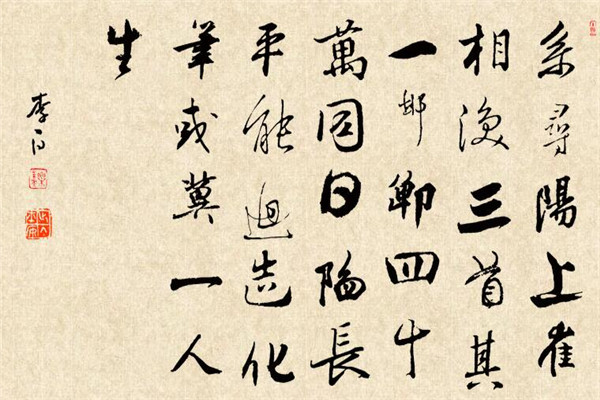 系尋陽上崔
相渙三首其
一邯鄲四十
萬同日陷長
平能迴造化
筆或冀一人
生
李白